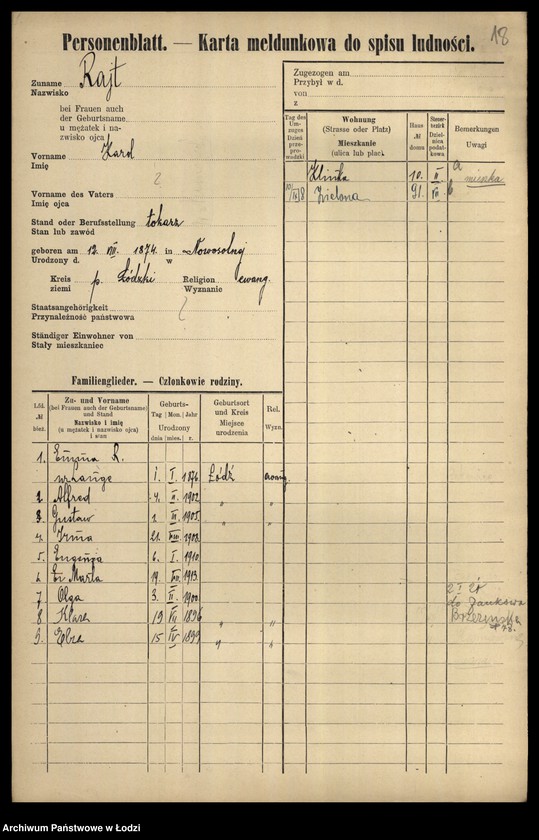 18
Personenblatt. — Karta meldunkowa do spisu ludności.
Zuname
Nazwisko
Rajt
bei Frauen auch
der Geburtsname
u mężatek i na-
zwisko ojca
Vorname
Imię
Karol
Vorname des Vaters
Imię ojca
Stand oder Berufsstellung
Stan lub zawód
tokarz
geboren am 12. VIII. 1874. in Nowosolnej
Urodzony d. w
Kreis p. Łódzki Religion ewang.
ziemi Wyznanie
Staatsangehörigkeit
Przynależność państwowa
Ständiger Einwohner von
Stały mieszkaniec
Zugezogen am
Przybył w d.
von
z
Tag des Um-zuges
Dzień prze pro-wadzki
Wohnung
(Strasse oder Platz)
Mieszkanie
(ulica lub plac)
Haus №
domu
Steuer-bezirk
Dziel-nica podat-kowa
Bemerkungen
Uwagi
Klinka 10. II. a mieszka
Zielona 91. VII. b
Familienglieder. — Członkowie rodziny.
Lfd. №
bież.
Zu- und Vorname
(bei Frauen auch der Geburtsname)
und Stand
Nazwisko i imię
(u mężatek i nazwisko ojca)
i stan
Geburts-
Tag Mon. Jahr
Urodzony
dnia mies. r.
Geburtsort
und Kreis
Miejsce
urodzenia
Rel.
Wyzn.
1. Emma R.
ur Lange 1. I. 1876. Łódź ewang.
2 Alfred 4. II. 1902. " "
3. Gustaw 1905. " "
4. Irma 21. VIII. 1908.
5. Eugenja 6. I. 1910.
6. Marta 19. 1913.
7 Olga 3. II. 1900.
8 Klara 19 VII 1896 " "
9. 15 IV 1899 " "
2 I 21
do Zankowa
Brzezińska
Archiwum Państwowe w Łodzi